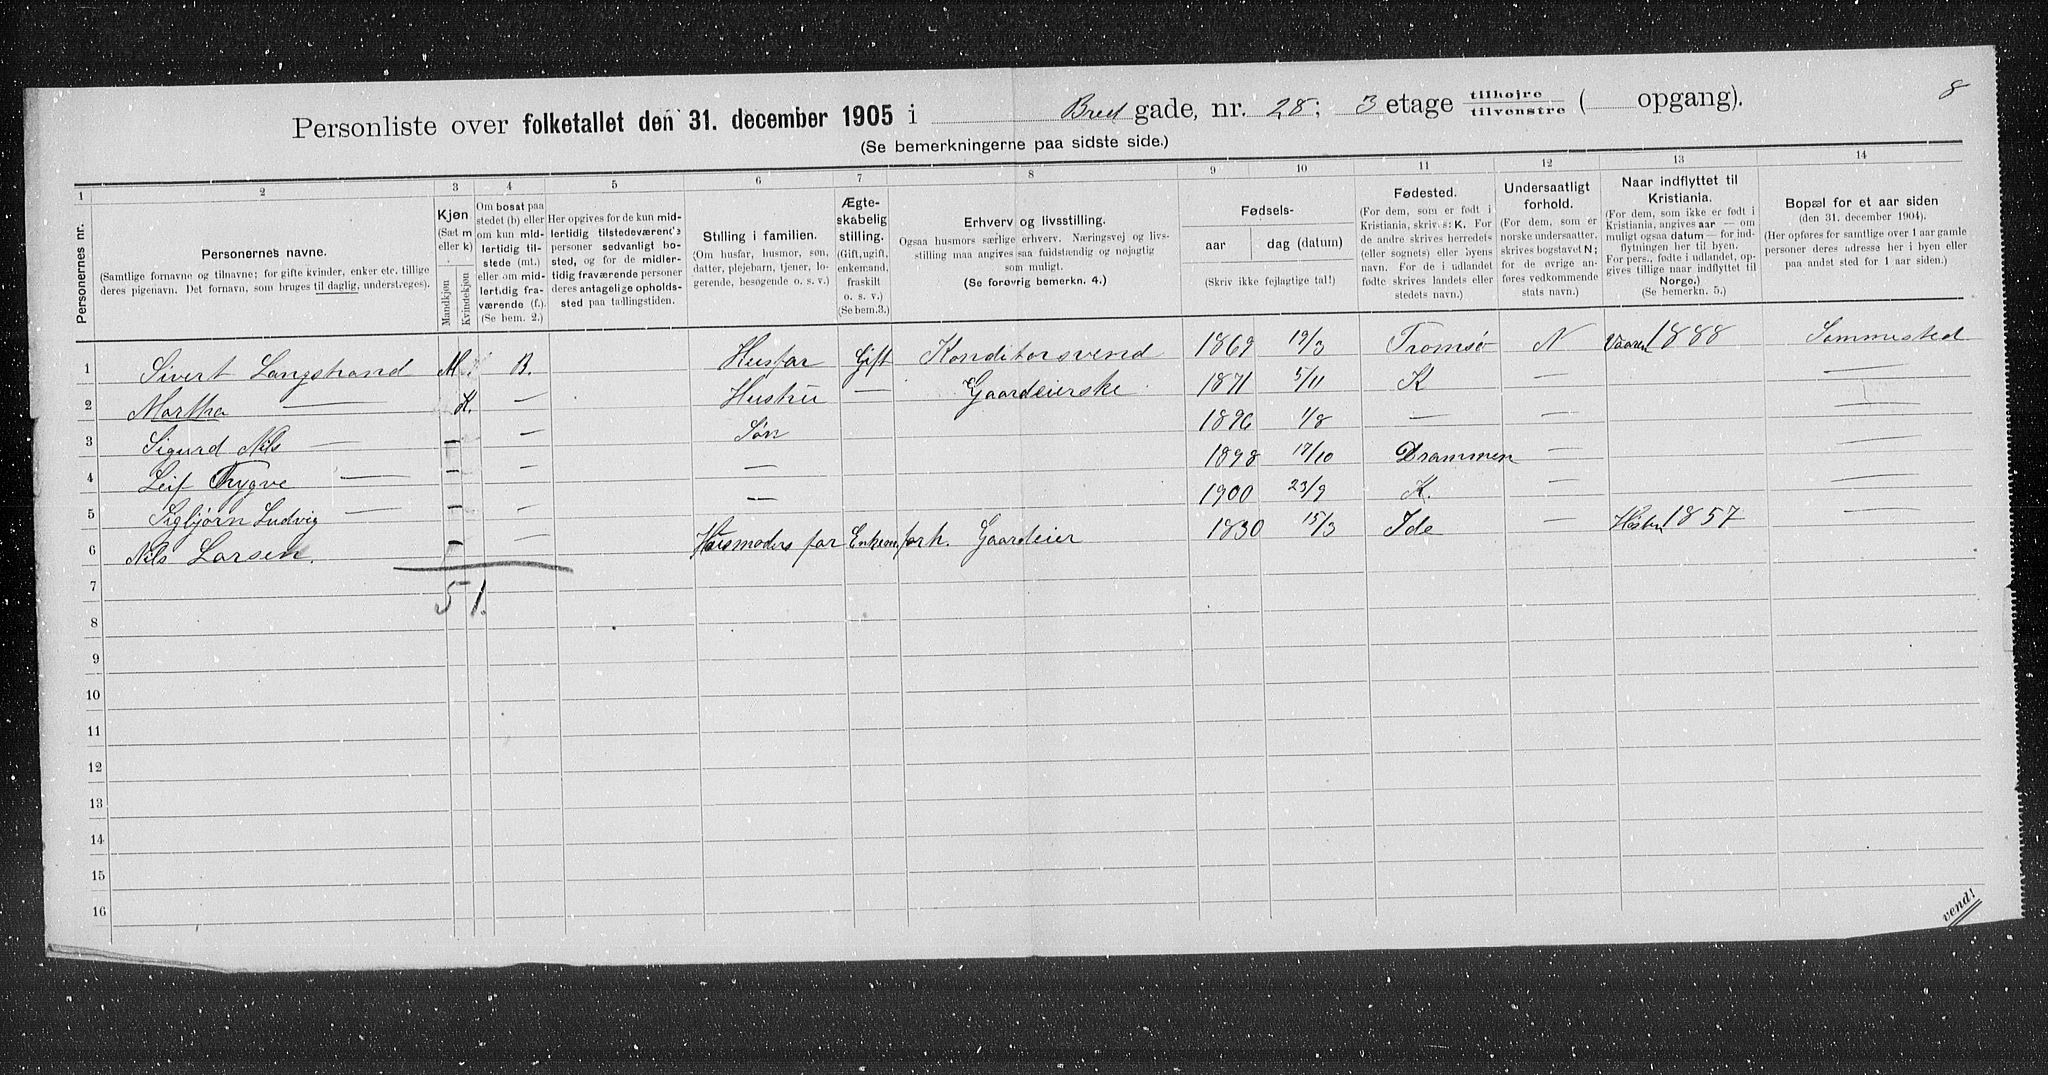 8
Personliste over folketallet den 31. december 1905 i Bred gade, nr. 28; 3 etage tilhøjre tilvenstre ( opgang).
(Se bemerkningerne paa sidste side.)
1 2 3 4 5 6 7 8 9 10 11 12 13 14
Personernes nr.
Personernes navne.
(Samtlige fornavne og tilnavne; for gifte kvinder, enker etc. tillige
deres pigenavn. Det fornavn, som bruges til daglig, understreges).
Kjøn
(Sæt m
eller k)
Mandkjøn
Kvindekjøn
Om bosat paa
stedet (b) eller
om kun mid-
lertidig til-
stede (mt.)
eller om mid-
lertidig fra-
værende (f.).
(Se bem. 2.)
Her opgives for de kun mid-
lertidig tilstedeværende
personer sedvanligt bo-
sted, og for de midler-
tidig fraværende personer
deres antagelige opholds-
sted paa tællingstiden.
Stilling i familien.
(Om husfar, husmor, søn,
datter, plejebarn, tjener, lo-
gerende, besøgende o. s. v.)
Ægte-
skabelig
stilling.
(Gift, ugift,
enkemand,
fraskilt
o. s. v.)
(Se bem.3.)
Erhverv og livsstilling.
Ogsaa husmors særlige erhverv. Næringsvej og livs-
stilling maa angives saa fuldstændig og nøjagtig
som muligt.
(Se forøvrig bemerkn. 4.)
Fødsels-
aar dag (datum)
(Skriv ikke fejlagtige tal!)
Fødested.
(For dem, som er født i
Kristiania, skriv s: K. For
de andre skrives herredets
(eller sognets) eller byens
navn. For de i udlandet
fødte skrives landets eller
stedets navn.)
Undersaatligt
forhold.
(For dem, som er
norske undersaatter,
skrives bogstavet N;
for de øvrige an-
føres vedkommende
stats navn.)
Naar indflyttet til
Kristiania.
(For dem, som ikke er født i
Kristiania, angives aar — om
muligt ogsaa datum — for ind-
flytningen her til byen.
For pers., fødte i udlandet, op-
gives tillige naar indflyttet til
Norge.)
(Se bemerkn. 5.)
Bopæl for et aar siden
(den 31. december 1904).
(Her opføres for samtlige over 1 aar gamle
personer deres adresse her i byen eller
paa andet sted for 1 aar siden.)
1 Sivert Langstrand M. B. Husfar Gift Konditorsvend 1869 19/3 Tromsø N Vaaren 1888 Sammested
2 Martha — K. — Hustru — Gaardeierske 1871 5/11 K — —
3 Sigurd Nils — — — Søn 1896 1/8 — — —
4 Leif Trygve — — — — 1898 17/10 Drammen — —
5 Sigbjørn Ludvig — — — — 1900 23/9 K. — —
6 Nils Larsen. — — Husmoders far Enkem. forh. Gaardeier 1830 15/3 Ide — Høsten 1857 —
7 5 1.
8
9
10
11
12
13
14
15
16
vend!